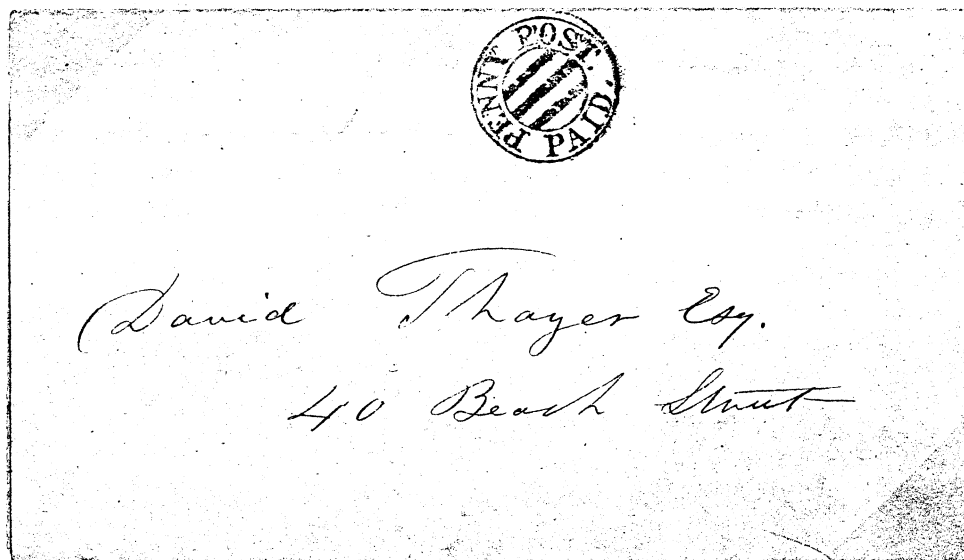 PENNY POST.
PAID.
David Thayer Esq.
40 Beach Street